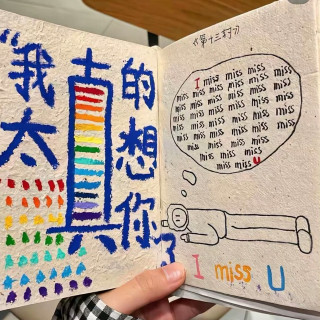 “我真的
太想
你了
《第十三封》
I miss miss miss
miss miss miss miss miss
miss miss miss miss miss
miss miss miss miss miss
miss miss miss miss miss
miss miss miss miss miss
miss miss miss miss
miss miss miss miss
miss miss U
I miss U